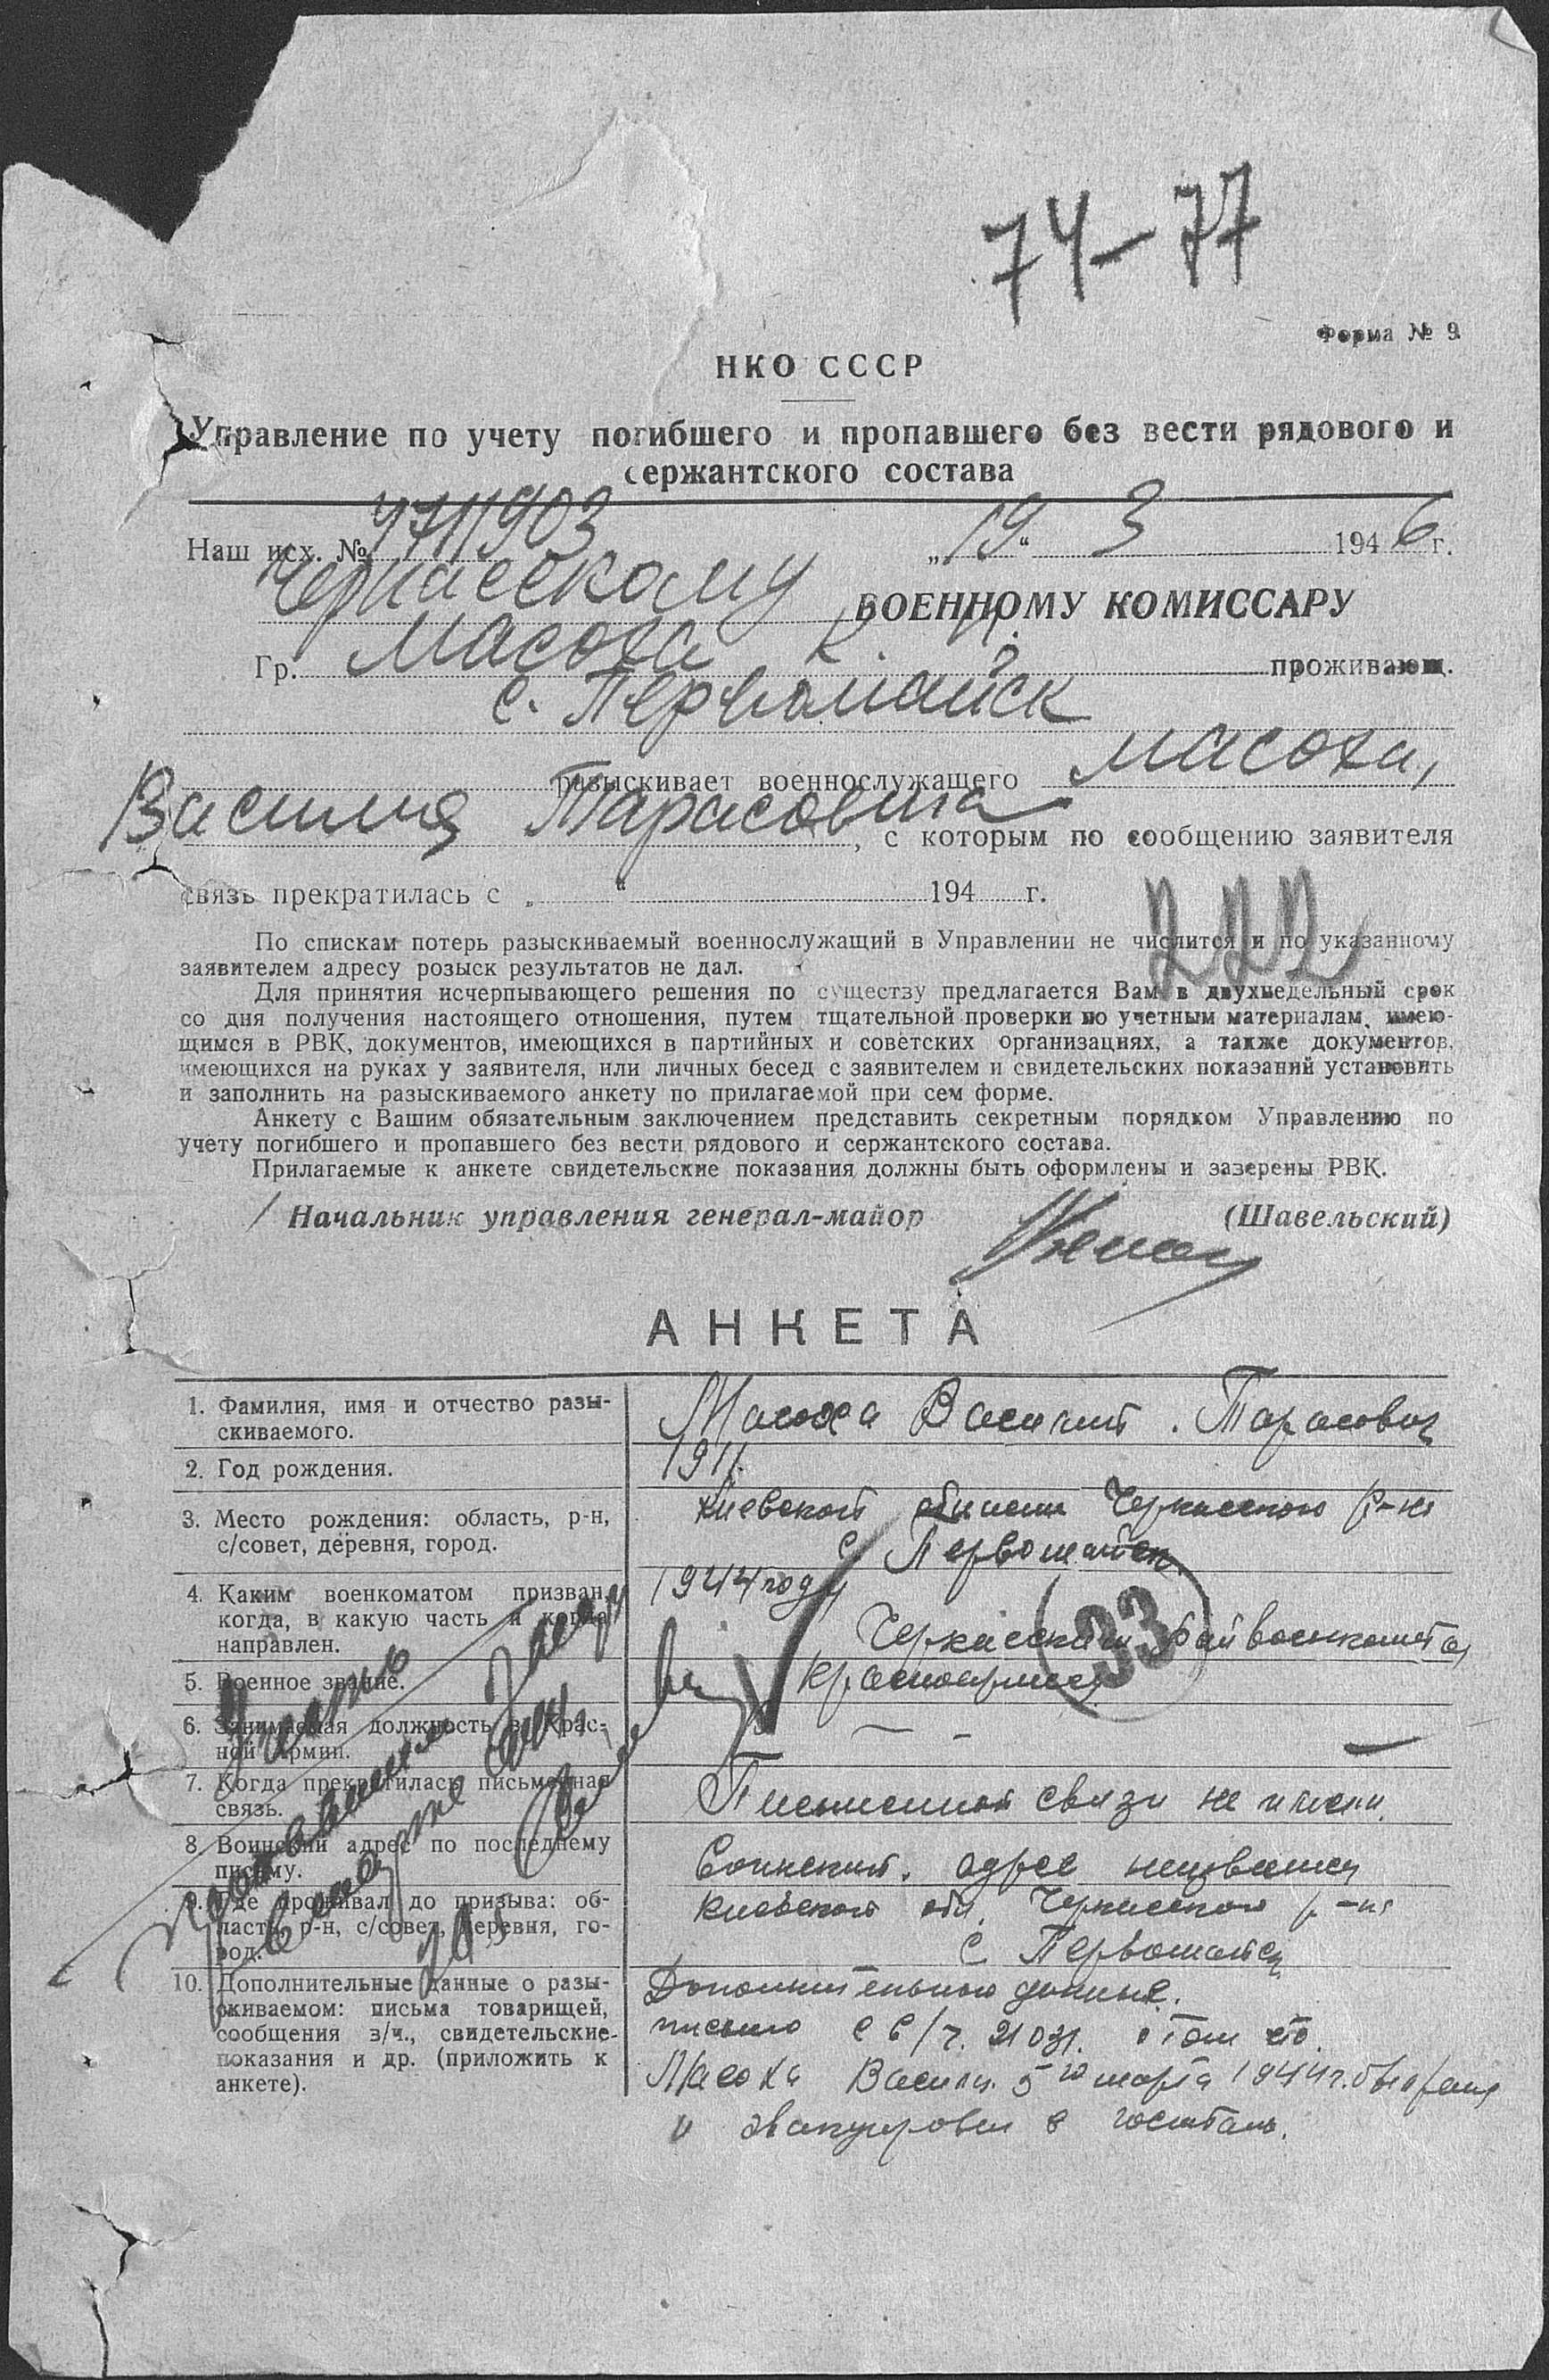 74-77
Форма № 9
НКО СССР
Управление по учету погибшего и пропавшего без вести рядового и
сержантского состава
Наш исх. № „19“ 3 1946 г.
Черкасскому ВОЕННОМУ КОМИССАРУ
Гр. Масоха К. проживающ.
с. Первомайск
разыскивает военнослужащего Масоха,
Василия Тарасовича, с которым по сообщению заявителя
связь прекратилась с „ “ 194 г.
222
По спискам потерь разыскиваемый военнослужащий в Управлении не числится и по указанному
заявителем адресу розыск результатов не дал.
Для принятия исчерпывающего решения по существу предлагается Вам в двухнедельный срок
со дня получения настоящего отношения, путем тщательной проверки по учетным материалам, имею-
щимся в РВК, документов, имеющихся в партийных и советских организациях, а также документов,
имеющихся на руках у заявителя, или личных бесед с заявителем и свидетельских показаний установить
и заполнить на разыскиваемого анкету по прилагаемой при сем форме.
Анкету с Вашим обязательным заключением представить секретным порядком Управлению по
учету погибшего и пропавшего без вести рядового и сержантского состава.
Прилагаемые к анкете свидетельские показания должны быть оформлены и заверены РВК.
Начальник управления генерал-майор (Шавельский)
АНКЕТА
1. Фамилия, имя и отчество разы-
скиваемого.
Масоха Василий Тарасович
2. Год рождения.
1911.
3. Место рождения: область, р-н,
с/совет, деревня, город.
Киевской области Черкасского р-на
с Первомайск
4. Каким военкоматом призван,
когда, в какую часть и когда
направлен.
1944 году
Черкасским райвоенкоматом
33
5. Военное звание.
Красноармеец
6. Занимаемая должность в Крас-
ной Армии.
— -
7. Когда прекратилась письменная
связь.
Письменной связи не имели.
8. Воинский адрес по последнему
письму.
Воинский адрес неизвестен
9. Где проживал до призыва: об-
ласть, р-н, с/совет, деревня, го-
род.
Киевской обл. Черкасского р-на
с Первомайск
10. Дополнительные данные о разы-
скиваемом: письма товарищей,
сообщения в/ч., свидетельские
показания и др. (приложить к
анкете).
Дополнительные данные.
письмо с в/ч. о том что
Масоха Васили 5го марта 1944 г. был ранен
и эвакуирован в госпиталь.